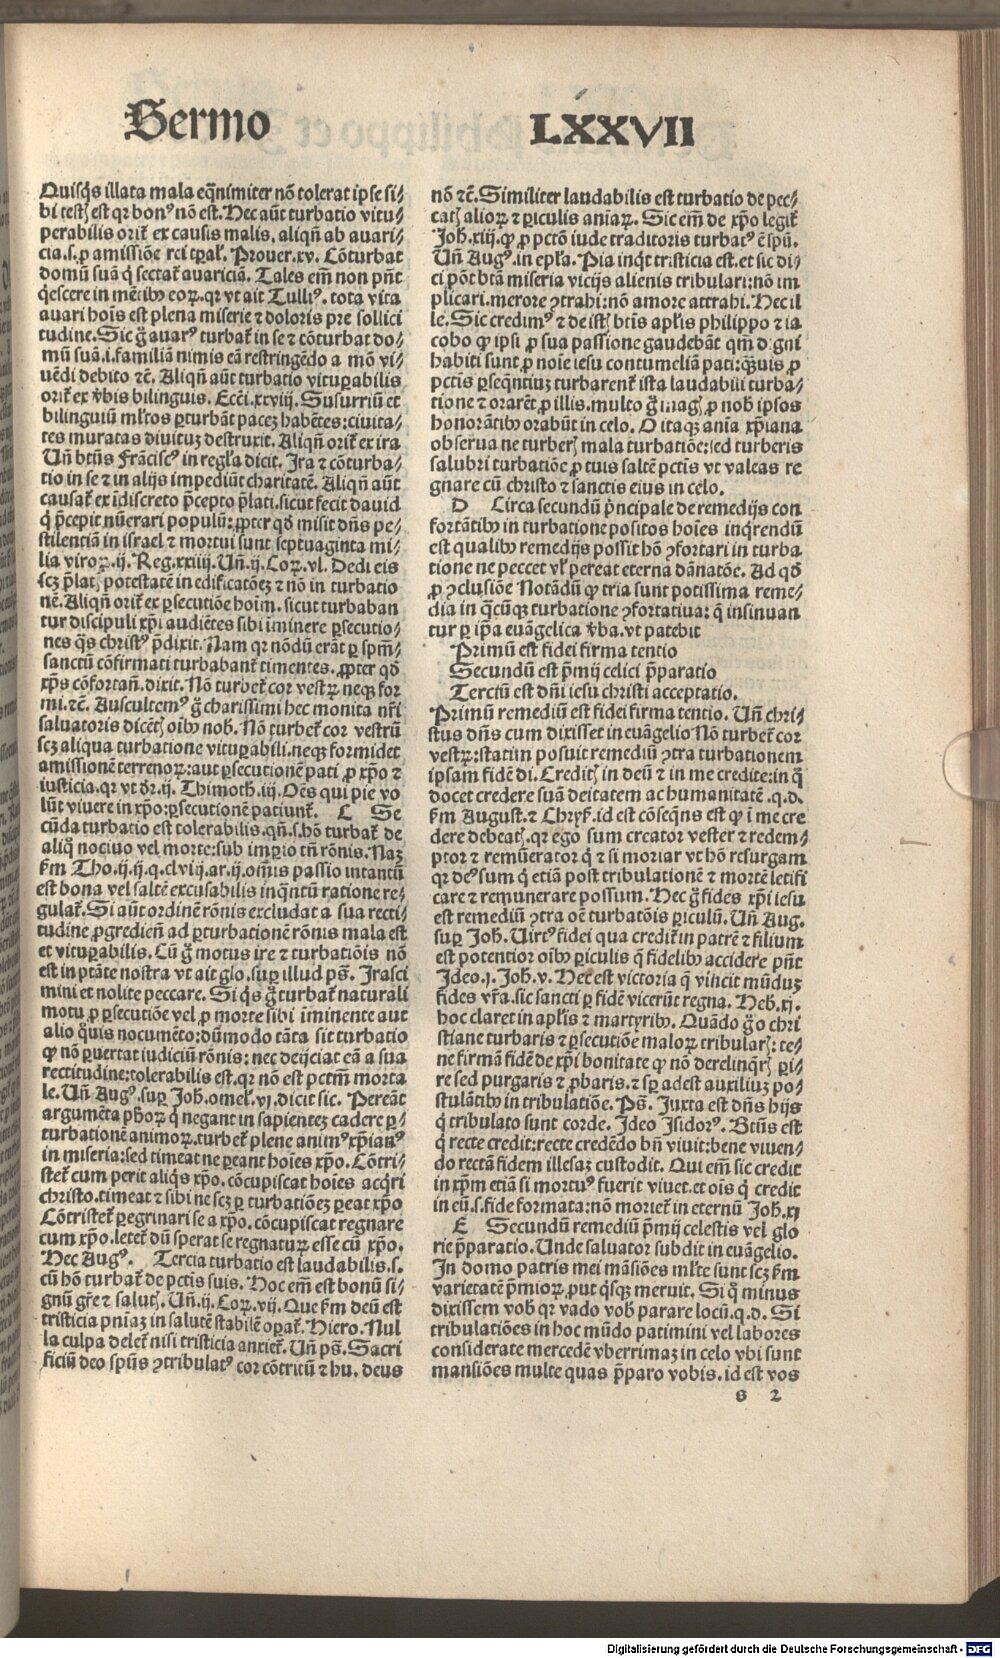 Sermo LXXVII
Quisq̄s illata mala eq̄nimiter nō tolerat ipse si⸗
bi testꝫ est qꝛ bonꝰ nō est. Hec aūt turbatio vitu⸗
perabilis orit᷑ ex causis malis. aliqn̄ ab auari⸗
cia .s. ꝑ amissiōe rei tꝑal᷑. Prouer. xv. Cōturbat
domū suā q̇ sectat᷑ auariciā. Tales em̄ non pn̄t
q̇escere in mētibꝰ eoꝝ. qꝛ vt ait Tulliꝰ. tota vita
auari hoīs est plena miserie ⁊ doloris pre sollici
tudine. Sic g̊ auarꝰ turbat᷑ in se ⁊ cōturbat do⸗
mū suā .i. familiā nimis eā restringēdo a mō vi⸗
uēdi debito ⁊c̄. Aliqn̄ aūt turbatio vituꝑabilis
orit᷑ ex v̄bis bilinguis. Ecc̄i. xxviij. Susurriū et
bilinguiū ml̄tos ꝑturbāt pacē habētes: ciuita⸗
tes muratas diuituꝫ destruxit. Aliqn̄ orit᷑ ex ira
Un̄ btūs Frāciscꝰ in regl̄a dicit. Ira ⁊ cōturba⸗
tio in se ⁊ in alijs impediūt charitatē. Aliqn̄ aūt
causat᷑ ex īdiscreto p̄cepto p̄lati. sicut fecit dauid
q̇ p̄cepit nūerari populū: ꝓpter qd̄ misit dn̄s pe⸗
stilentiā in israel ⁊ mortui sunt septuaginta mi⸗
lia viroꝝ .ij. Reg. xxiiij. Un̄ .ij. Coꝝ. vl. Dedi eis
scꝫ p̄latꝫ potestatē in edificatōeꝫ ⁊ nō in turbatio
nē. Aliqn̄ orit᷑ ex ꝑsecutiōe hoīm. sicut turbaban
tur discipuli xp̄i audiētes sibi īminere ꝑsecutio⸗
nes q̄s christꝰ p̄dixit. Nam qꝛ nōdū erāt ꝑ spm̄
sanctū cōfirmati turbabant᷑ timentes. ꝓpter qd̄
xp̄s cōfortan̄. dixit. Nō turbet᷑ cor vestꝝ neqꝫ for
mi. ⁊c̄. Auscultemꝰ g̊ charissimi hec monita nr̄i
saluatoris dicētꝫ oībꝰ nob. Nō turbet᷑ cor vestrū
scꝫ aliqua turbatione vituꝑabili. neqꝫ formidet
amissionē terrenoꝝ: aut ꝑsecutionē pati ꝓ xp̄o ⁊
iusticia. qꝛ vt dr̄ .ij. Thimoth. iij. Oēs qui pie vo
lūt viuere in xp̄o: ꝑsecutionē patiunt᷑. C Se
cūda turbatio est tolerabilis. qn̄ .s. hō turbat᷑ de
aliq̊ nociuo vel morte: sub imꝑio tn̄ rōnis. Naꝫ
fm̄ Tho. ij. ij. q. clviij. ar. ij. oīs passio intantū
est bona vel saltē excusabilis inq̄ntū ratione re⸗
gulat᷑. Si aūt ordinē rōnis excludat a sua recti⸗
tudine ꝓgredien̄ ad ꝑturbationē rōnis mala est
et vituꝑabilis. Cū g̊ motus ire ⁊ turbatiōis nō
est in ptāte nostra vt ait glo. suꝑ illud ps̄. Irasci
mini et nolite peccare. Si q̇s g̊ turbat᷑ naturali
motu ꝓ ꝑsecutiōe vel ꝓ morte sibi īminente aut
alio q̇uis nocumēto: dūmodo tāta sit turbatio
ꝙ nō ꝑuertat iudiciū rōnis: nec deijciat eā a sua
rectitudine: tolerabilis est. qꝛ nō est pctm̄ morta
le. Un̄ Augꝰ. suꝑ Joh. omel̄. vj. dicit sic. Pereāt
argumēta pħoꝝ q̇ negant in sapienteꝫ cadere ꝑ⸗
turbationē animoꝝ. turbet᷑ plene animꝰ xp̄ianꝰ
in miseria: sed timeat ne ꝑeant hoīes xp̄o. Cōtri⸗
stet᷑ cum perit aliq̇s xp̄o. cōcupiscat hoīes acq̇ri
christo. timeat ⁊ sibi ne scꝫ ꝑ turbatiōeꝫ ꝑeat xp̄o
Cōtristet᷑ ꝑegrinari se a xp̄o. cōcupiscat regnare
cum xp̄o. letet᷑ dū sperat se regnaturꝝ esse cū xp̄o.
Hec Augꝰ. Tercia turbatio est laudabilis .s.
cū hō turbat᷑ de pctīs suis. Hoc em̄ est bonū si⸗
gnū gr̄e ⁊ salutꝫ. Un̄ .ij. Coꝝ. vij. Que fm̄ deū est
tristicia pn̄iaꝫ in salutē stabilē oꝑat᷑. Hiero. Nul
la culpa delet᷑ nisi tristicia anxiet᷑. Un̄ ps̄. Sacri
ficiū deo spūs ꝯtribulatꝰ cor cōtritū ⁊ hu. deus
nō ⁊c̄. Similiter laudabilis est turbatio de pec⸗
catꝫ alioꝝ ⁊ ꝑiculis aniaꝝ. Sic em̄ de xp̄o legit᷑
Joh. xiij. ꝙ ꝓ pctō iude traditoris turbatꝰ ē spū.
Un̄ Augꝰ. in epl̄a. Pia inq̇t tristicia est. et sic di
ci pōt btā miseria vicijs alienis tribulari: nō im
plicari. merore ꝯtrahi: nō amore attrahi. Hec il
le. Sic credimꝰ ⁊ de istꝫ btīs apl̄is philippo ⁊ ia
cobo ꝙ ipsi ꝓ sua passione gaudebāt qm̄ d·gni
habiti sunt ꝓ noīe iesu contumeliā pati: q̄uis ꝓ
pctīs ꝑseq̄ntiuꝫ turbarent᷑ ista laudabili turba⸗
tione ⁊ orarēt ꝓ illis. multo g̊ magꝫ ꝓ nob ipsos
honorātibꝰ orabūt in celo. O itaqꝫ anīa xp̄iana
obserua ne turberꝫ mala turbatiōe: sed turberis
salubri turbatiōe ꝓ tuis saltē pctīs vt valeas re
gnare cū christo ⁊ sanctis eius in celo.
D Circa secundū p̄ncipale de remedijs con
fortātibꝰ in turbatione positos hoīes inq̇rendū
est qualibꝰ remedijs possit hō ꝯfortari in turba
tione ne peccet vl̄ pereat eterna dānatōe. Ad qd̄
ꝓ ꝯclusiōe Notādū ꝙ tria sunt potissima reme⸗
dia in q̄cūqꝫ turbatione ꝯfortatiua: q̄ insinuan
tur ꝑ ip̄a euāgelica v̄ba. vt patebit
Primū est fidei firma tentio
Secundū est p̄mij celici p̄paratio
Terciū est dn̄i iesu christi acceptatio.
Primū remediū est fidei firma tentio. Un̄ chri⸗
stus dn̄s cum dixisset in euāgelio Nō turbet᷑ cor
vestꝝ: statim posuit remediū ꝯtra turbationem
ipsam fidē di. Creditꝫ in deū ⁊ in me credite: in q̊
docet credere suā deitatem ac humanitatē .q.d.
fm̄ August. ⁊ Chryẜ. id est cōseq̄ns est ꝙ ī me cre
dere debeatꝫ. qꝛ ego sum creator vester ⁊ redem⸗
ptor ⁊ remūerator q̇ ⁊ si moriar vt hō resurgam
qꝛ deꝰ sum q̇ etiā post tribulationē ⁊ mortē letifi
care ⁊ remunerare possum. Hec g̊ fides xp̄i iesu
est remediū ꝯtra oē turbatōis ꝑiculū. Un̄ Aug.
suꝑ Joh. Uirtꝰ fidei qua credit᷑ in patrē ⁊ filium
est potentior oībꝰ ꝑiculis q̄ fidelibꝰ accidere pn̄t
Ideo .j. Joh. v. Hec est victoria q̄ vincit mūduꝫ
fides vr̄a. sic sancti ꝑ fidē vicerūt regna. Heb. xj.
hoc claret in apl̄is ⁊ martyribꝰ. Quādo g̊o chri
stiane turbaris ⁊ ꝑsecutiōe maloꝝ tribularꝫ: te⸗
ne firmā fidē de xp̄i bonitate ꝙ nō derelinq̇rꝫ ꝑi⸗
re sed purgaris ⁊ ꝓbaris. ⁊ sꝑ adest auxiliuꝫ po⸗
stulātibꝰ in tribulatiōe. Ps̄. Juxta est dn̄s hijs
q̇ tribulato sunt corde. Ideo Isidorꝰ. Btūs est
q̇ recte credit: recte credēdo bn̄ viuit: bene viuen⸗
do rectā fidem illesaꝫ custodit. Qui em̄ sic credit
in xp̄m etiā si mortuꝰ fuerit viuet. et oīs q̇ credit
in eū .s. fide formata: nō moriet᷑ in eternū Joh. xj
E Secundū remediū p̄mij celestis vel glo
rie p̄paratio. Unde saluator subdit in euāgelio.
In domo patris mei māsiōes ml̄te sunt scꝫ fm̄
varietatē p̄mioꝝ. put q̇sqꝫ meruit. Si q̊ minus
dixissem vob qꝛ vado vob parare locū .q.d. Si
tribulatiōes in hoc mūdo patimini vel labores
considerate mercedē vberrimaꝫ in celo vbi sunt
mansiōes multe quas p̄paro vobis. id est vos
s 2
Digitalisierung gefördert durch die Deutsche Forschungsgemeinschaft - DFG